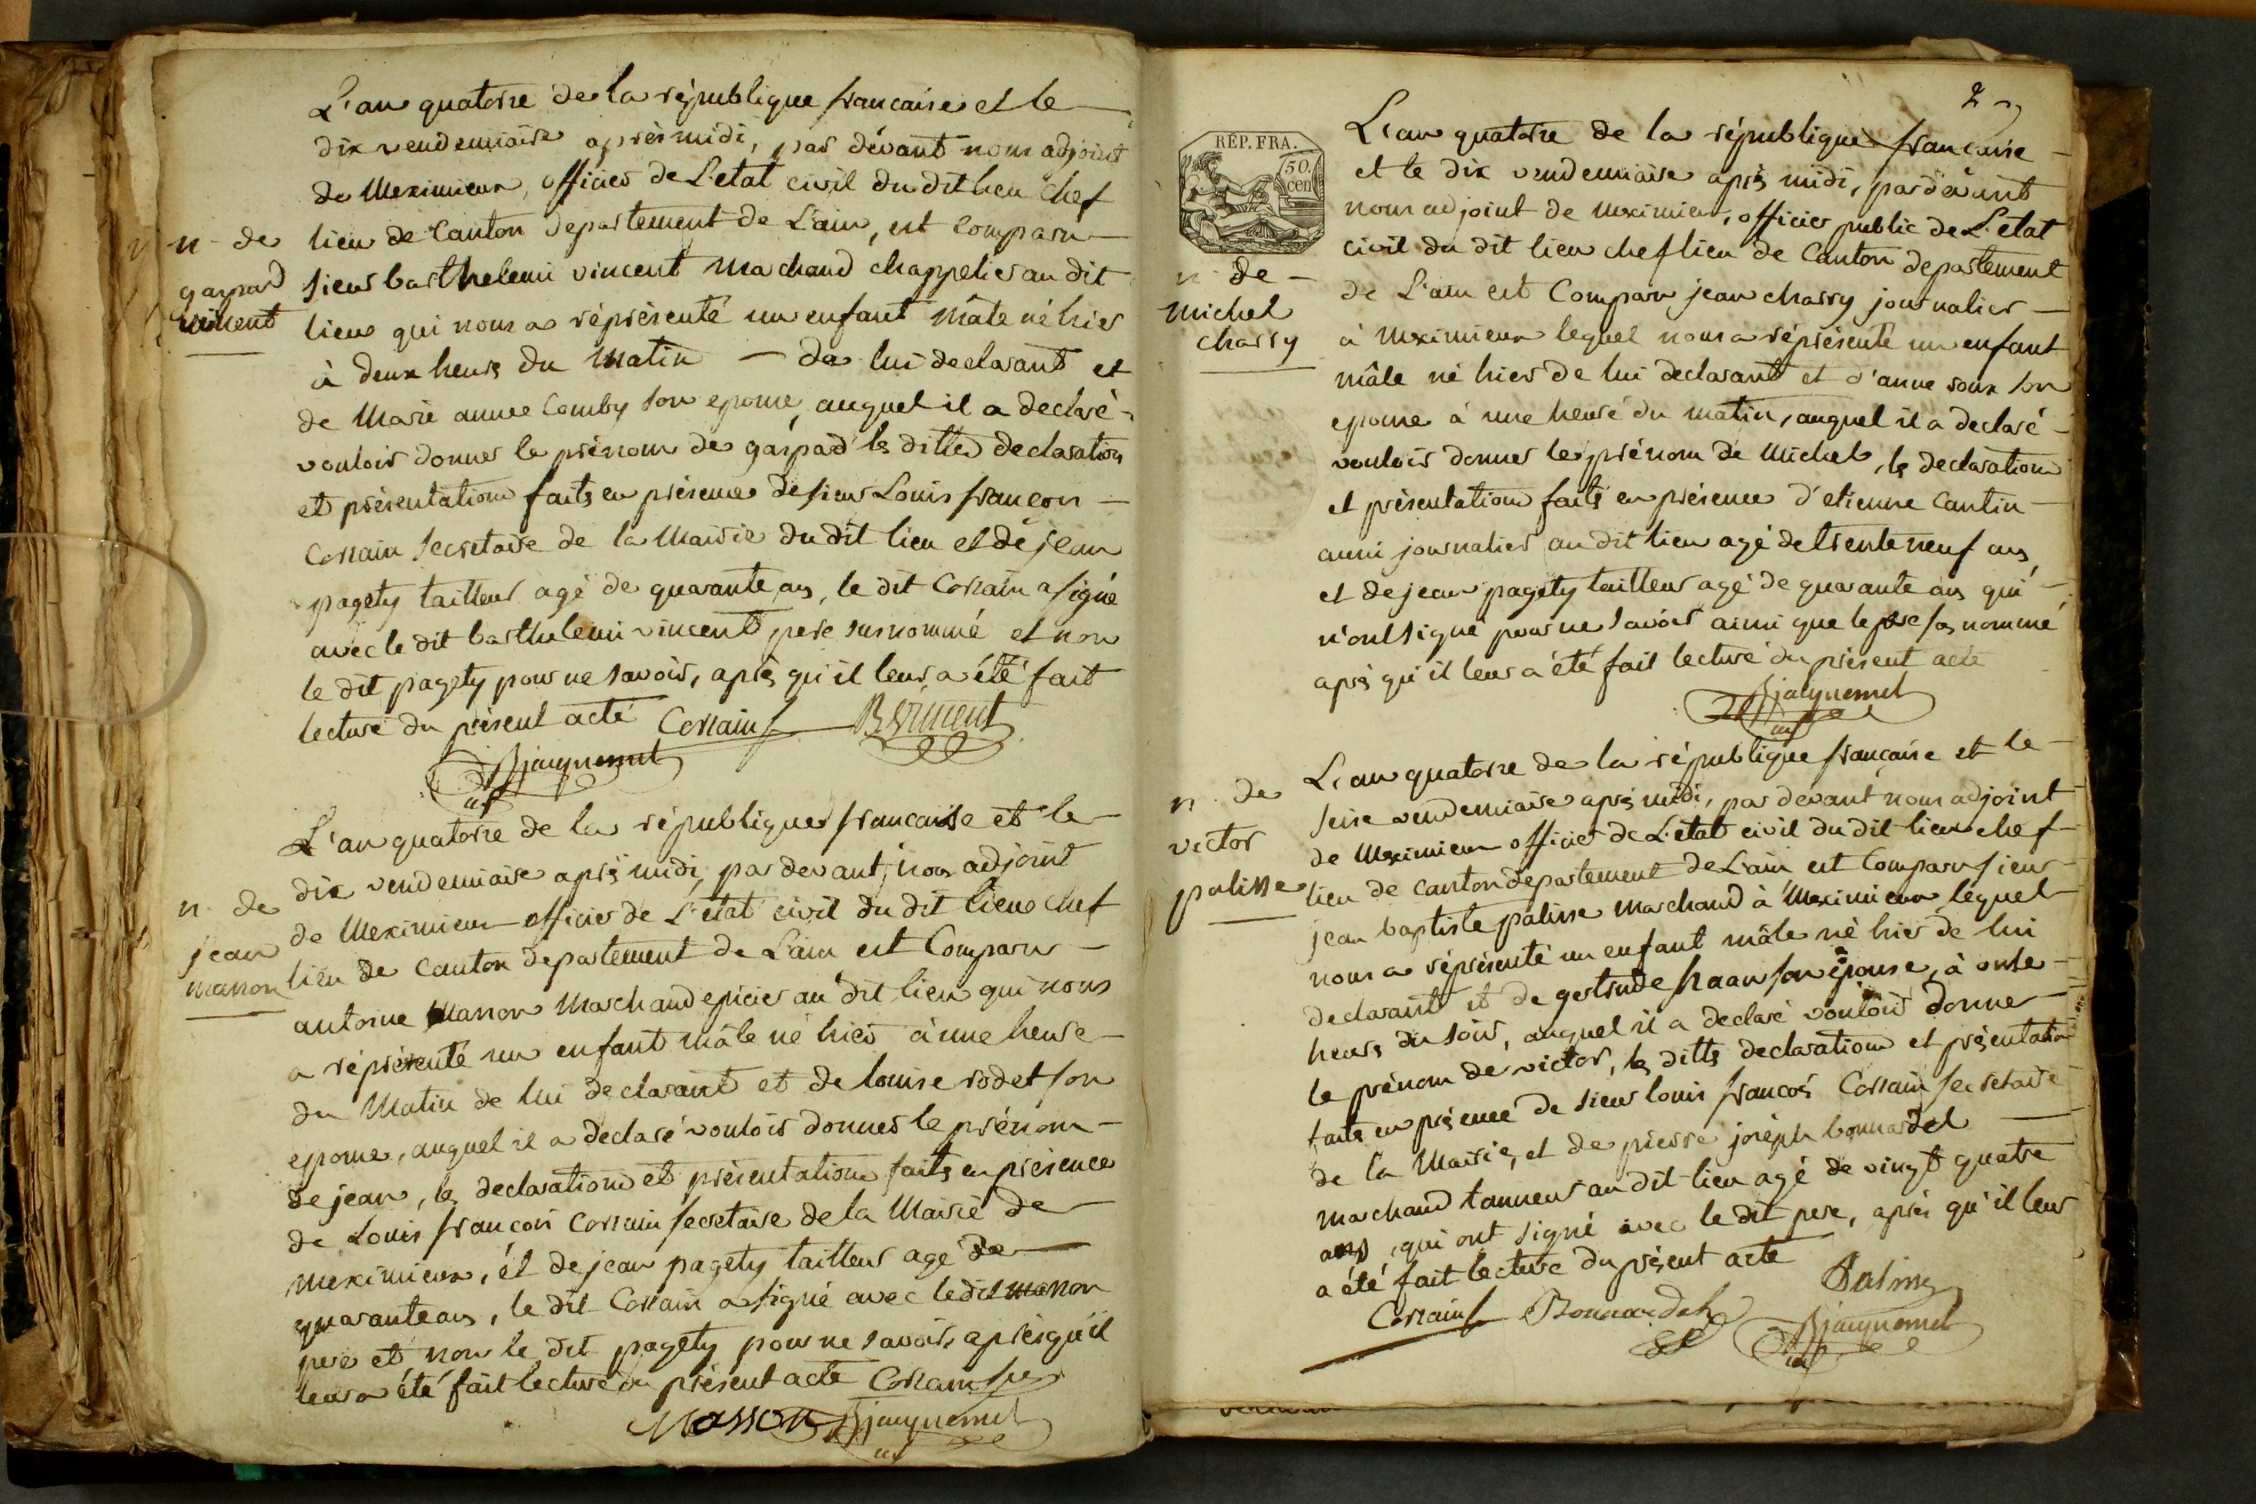 L'an quatorze de la république francaise et le
dix vendemiaire après midi, par dévant nous adjoint
de Meximieux, officier de L'etat civil du dit lieu chef
n. de
gaspard
vincent
lieu de Canton departement de L'ain, est comparu
sieur barthelemi vincent Marchand chappelier au dit
lieu qui nous a réprésenté un enfant Mâle né hier
à deux heurs du Matin — de lui declarant et
de Marie anne Comby son epouse, auquel il a declaré
vouloir donner le prénom de gaspad ls dittes declaration
et présentation faits en présence de sieur Louis françois
Corrain secretaire de la Mairie du dit lieu et de jean
pagety tailleur agé de quarante ans, le dit Corrain a signé
avec le dit barthelemi vincent pere susnommé et non
le dit pagety pour ne savoir, après qu'il leur a été fait
lecture du présent acte Corrain B Vincent
Bjacquemet
L'an quatorze de la république francaise et le
n. de
jean
masson
dix vendemiaire après midi, par devant, nous adjoint
de Meximieux officier de L'état civil du dit lieu chef
lieu de Canton departement de L'ain est Comparu
antoine Masson Marchand epicier au dit lieu qui nous
a réprésenté un enfant mâle né hier à une heure
du Matin de lui declarant et de louise rodet son
epouse, auquel il a declaré vouloir donner le prénom
de jean, ls declaration et présentation faits en présence
de Louis françois Corrain secretaire de la Mairie de
meximieux, et de jean pagety tailleur agé de
quarante ans, le dit Corrain a signé avec le dit masson
pere et non le dit pagety pour ne savoir après qu'il
leur a été fait lecture du présent acte Corrain
Masson Bjacquemet
2
RÉP. FRA.
50
cen
n. de
michel
charry
L'an quatorze de la république francaise
et le dix vendemiaire après midi, par dévant
nous adjoint de Meximieux, officier public de L'état
civil du dit lieu chef lieu de Canton departement
de L'ain est Comparu jean charry journalier
à Meximieux lequel nous a réprésenté un enfant
mâle né hier de lui declarant et d'anne roux son
epouse à une heure du matin, auquel il a declaré
vouloir donner le prénom de Michel, ls declaration
et présentation faits en présence d'etienne Cantin
aussi journalier au dit lieu agé de trente neuf ans
et de jean pagety tailleur agé de quarante ans qui
n'ont signé pour ne savoir ainsi que le pere sus nommé
après qu'il leur a été fait lecture du présent acte
Bjacquemet
n. de
victor
palisse
L'an quatorze de la république française et le
seize vendemiaire après midi, par devant nous adjoint
de Meximieux officier de L'état civil du dit lieu chef
lieu de canton departement de L'ain est Comparu sieur
jean baptiste palisse Marchand à Meximieux lequel
nous a réprésenté un enfant mâle né hier de lui
declarant et de gertrude haan son épouse, à onze
heurs du soir, auquel il a declaré vouloir donner
le prénom de victor, ls ditts declaration et présentation
faits en présence de sieur louis françois Corrain secretaire
de la Mairie, et de pierre joséph bonnardel
marchand tanneur au dit lieu agé de vingt quatre
ans, qui ont signé avec le dit pere, après qu'il leur
a été fait lecture du présent acte
Palisse
Corrain Bonnardel Bjacquemet